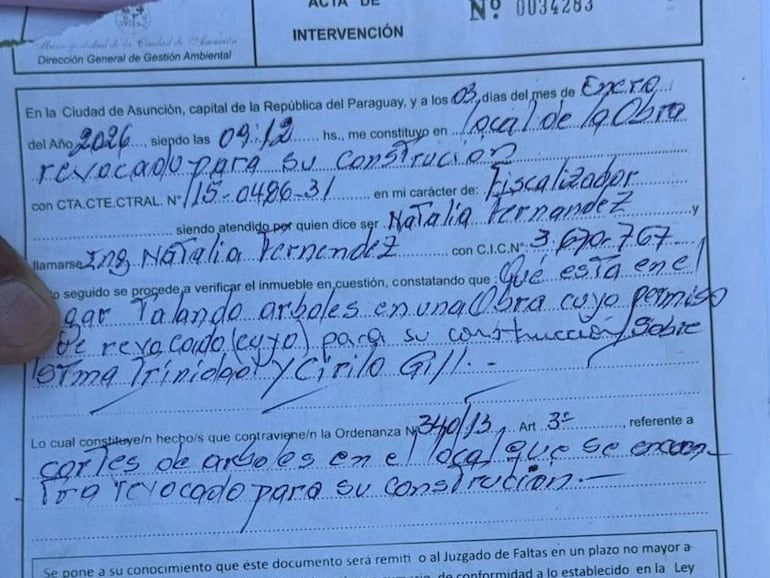 ACTA DE
INTERVENCIÓN
Nº 0034283
Municipalidad de la Ciudad de Asunción
Dirección General de Gestión Ambiental
En la Ciudad de Asunción, capital de la República del Paraguay, y a los 03 días del mes de Enero
del Año 2026 siendo las 09:12 hs., me constituyo en local de la Obra
revocado para su construcion
con CTA.CTE.CTRAL. Nº 15-0486-31 en mi carácter de: Fiscalizador
siendo atendido por quien dice ser Natalia Fernandez y
llamarse Ing Natalia Fernendez con C.I.C.Nº 3.670.767
to seguido se procede a verificar el inmueble en cuestión, constatando que: Que está en el
gar Talando arboles en una Obra cuyo permiso
fue revocado (cyo) para su construccion sobre
STma Trinidad y Cirilo Gill.-
Lo cual constituye/n hecho/s que contraviene/n la Ordenanza Nº 340/13 Art 3º, referente a
cortes de arboles en el local que se encuen-
tra revocado para su construcion.-
Se pone a su conocimiento que este documento será remiti o al Juzgado de Faltas en un plazo no mayor a
de conformidad a lo establecido en la Ley